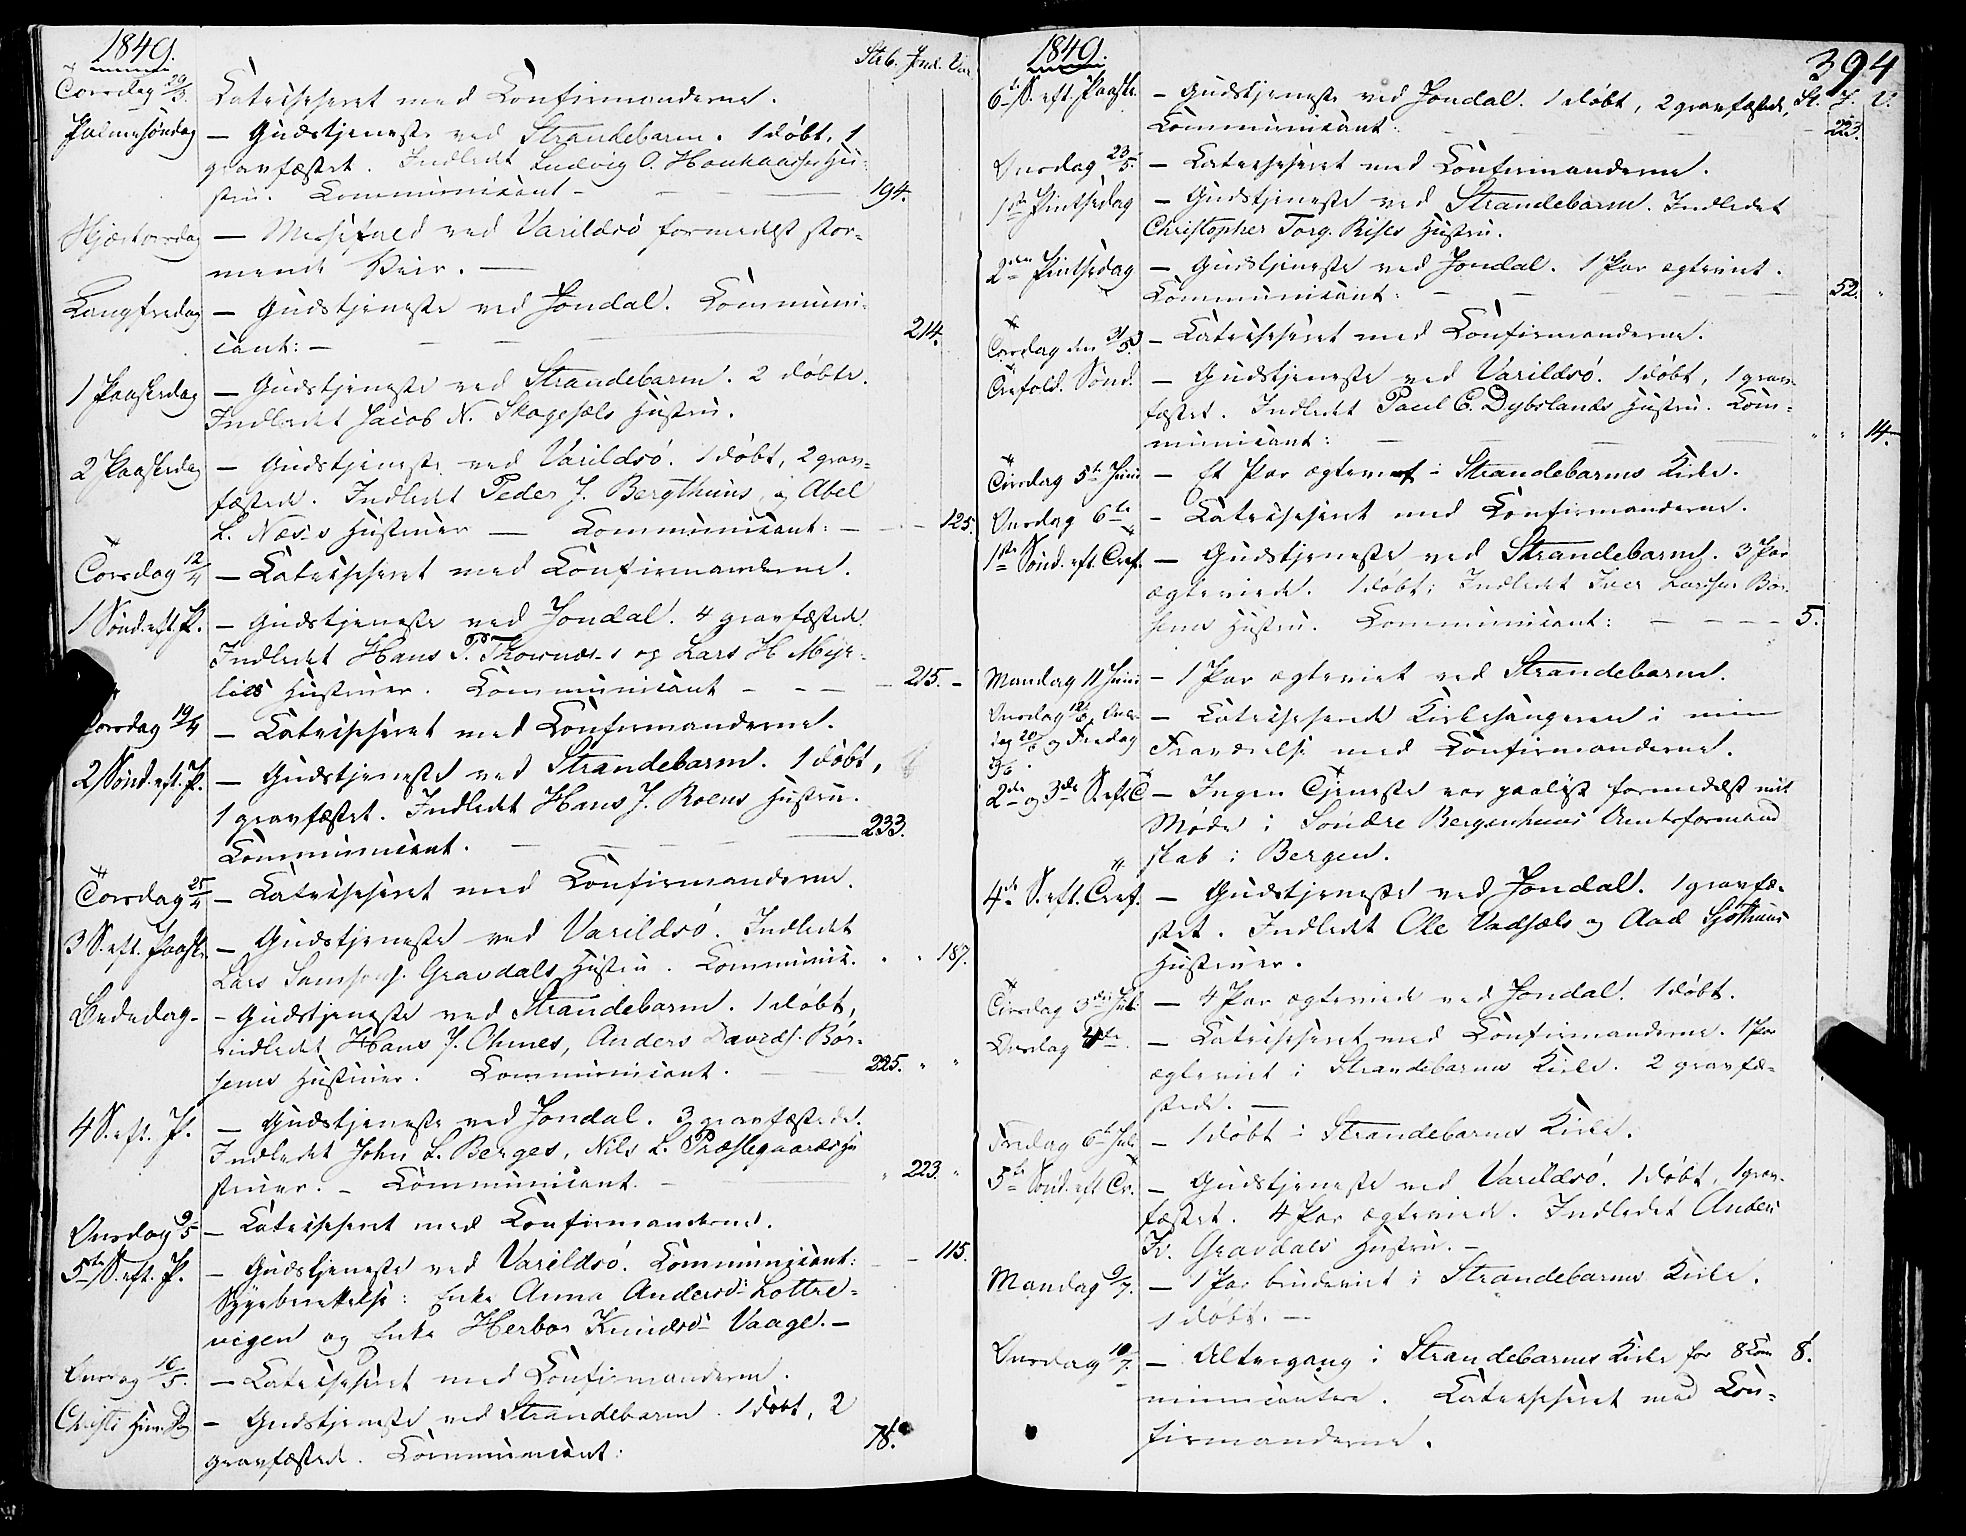 1849.
Stb. Jond. Var.
Torsdag 29/3. Catechiseret med Confirmanderne.
Palmesøndag — Gudstjeneste ved Strandebarm. 1 døbt, 1
gravfæstet. Indledet Ludvig O. Haukaasses Hu-
stru. Communicant — 194.
Skjærtorsdag — Messefald ved Varildsø formedelst stor-
mende Veir. —
Langfredag — Gudstjeneste ved Jondal. Communi-
cant: — 214.
1 Paaskedag — Gudstjeneste ved Strandebarm. 2 døbte.
Indledet Jacob N. Skogesæls Hustru.
2 Paaskedag — Gudstjeneste ved Varildsø. 1 døbt, 2 grav-
fæstede. Indledet Peder J. Bergthuns, og Abel
L. Næss's Hustruer — Communicant: — 125.
Torsdag 12/4 — Catechiseret med Confirmanderne.
1 Sønd. eft. P. — Gudstjeneste ved Jondal. 4 gravfæstede.
Indledet Hans T. Thornæs's og Lars H. Myk-
lies Hustruer. Communicant — 215. —
Torsdag 19/4 — Catechiseret med Confirmanderne.
2 Sønd. eft. P. — Gudstjeneste ved Strandebarm. 1 døbt,
1 gravfæstet. Indledet Hans J. Roens Hustru.
Communicant. — 233.
Torsdag 25/4 — Catechiseret med Confirmanderne.
3 S. eft. Paaske — Gudstjeneste ved Varildsø. Indledet
Lars Samsons. Gravdals Hustru. Communic. 187.
Bededag — Gudstjeneste ved Strandebarm. 1 døbt,
indledet Hans J. Omes, Anders Davids. Bør-
sems Hustruer. Communicant. — 225. " "
4 S. eft. P. — Gudstjeneste ved Jondal. 3 gravfæstede.
Indledet John L. Berges, Nils L. Præstegaards Hu
struer. — Communicant. — " 223. "
Onsdag 9/5 — Catechiseret med Confirmanderne.
5te S. eft. P. — Gudstjeneste ved Varildsø. Communicant: — 115.
Sygeberettelse: Enke Anna Andersd. Lottre-
vigen og Enke Herbor Knudsd. Vaage. —
Onsdag 16/5. — Catechiseret med Confirmanderne.
Christi Him. D. — Gudstjeneste ved Strandebarm. 1 døbt, 2
gravfæstede. Communicant: 78.
1849.
394
6te S. eft. Paaske. — Gudstjeneste ved Jondal. 1 døbt, 2 gravfæstede, St. J. V.
Communicant: — 223.
Onsdag 23/5. — Catechiseret med Confirmanderne.
1ste Pintsedag — Gudstjeneste ved Strandebarm. Indledet
Christopher Torg. Rises Hustru.
2den Pintsedag — Gudstjeneste ved Jondal. 1 Par ægteviet.
Communicant: — 52. "
Torsdag den 31/5. — Catechiseret med Confirmanderne.
Trefold. Sønd. — Gudstjeneste ved Varildsø. 1 døbt, 1 grav-
fæstet. Indledet Poul C. Dybslands Hustru. Com-
municant: — " " 14.
Tirsdag 5te Juni — Et Par ægteviet i Strandebarms Kirke.
Onsdag 6te — Catechiseret med Confirmanderne.
1ste Sønd. eft. Tref. — Gudstjeneste ved Strandebarm. 3 Par
ægteviede. 1 døbt; Indledet Iver Larsen Bør-
sems Hustru. Communicant: — 5.
Mandag 11 Juni — 1 Par ægteviet ved Strandebarm.
Onsdag 13/6, Ons- — Catechiserede Kirkesangeren i min
dag 20/6 og Fredag Fraværelse med Confirmanderne.
2de og 3die S. eft. T. — Ingen Tjeneste var paalyst formedelst mit
Møde i Søndre Bergenhuus Amtsformand
skab i Bergen.
4de S. eft. Tref. — Gudstjeneste ved Jondal. 1 gravfæ-
stet. Indledet Ole Vadsæls og Aad Sjøthuns
Hustruer.
Tirsdag 3die Juli — 4 Par ægteviede ved Jondal. 1 døbt.
Onsdag 4de — Catechiseret med Confirmanderne. 1 Par
ægteviet i Strandebarms Kirke. 2 gravfæ-
stede. —
Fredag 6te Juli — 1 døbt i Strandebarms Kirke.
5te Sønd. eft. Tr. — Gudstjeneste ved Varildsø. 1 døbt, 1 grav-
fæstet. 4 Par ægteviede. Indledet Anders
Iv. Gravdals Hustru. —
Mandag 9/7. — 1 Par brudeviet i Strandebarms Kirke.
1 døbt. —
Onsdag 10/7. — Altergang i Strandebarms Kirke for 8 Com 8.
municantere. Catechiseret med Con-
firmanderne.